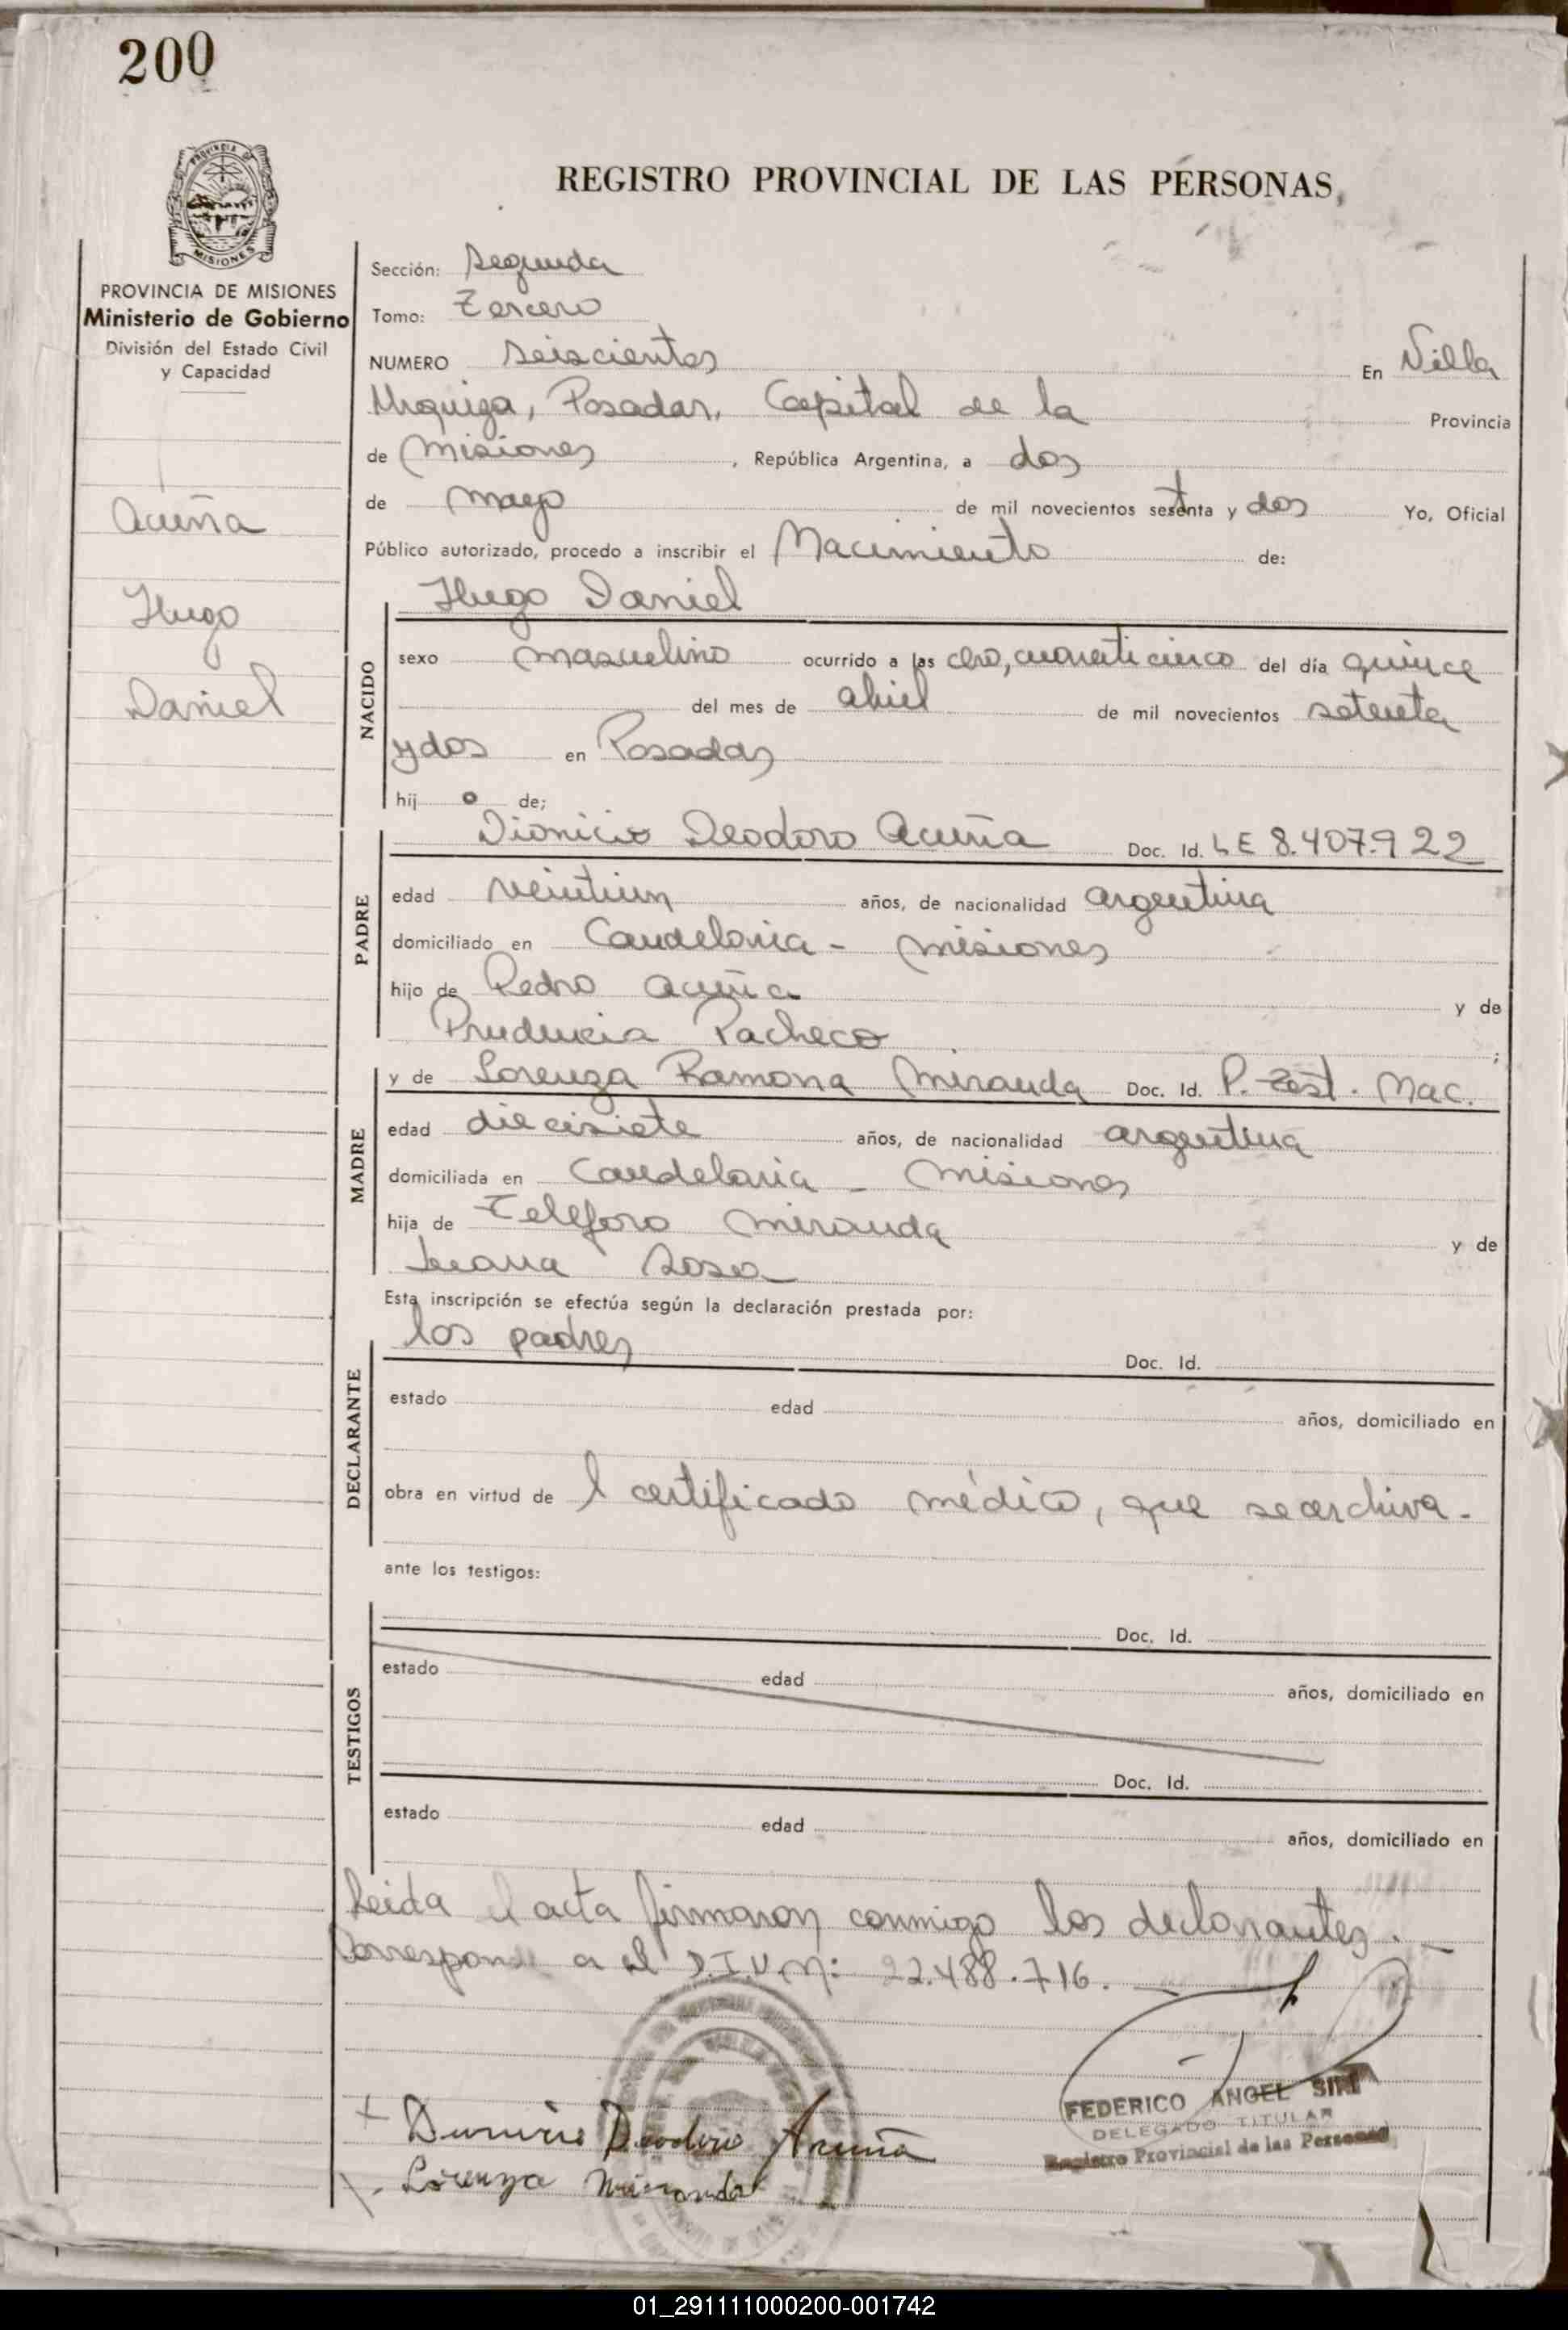 200
PROVINCIA DE
MISIONES
REGISTRO PROVINCIAL DE LAS PERSONAS
PROVINCIA DE MISIONES
Ministerio de Gobierno
División del Estado Civil
y Capacidad
Acuña
Hugo
Daniel
Sección: Segunda
Tomo: Tercero
NUMERO seiscientos En Villa
Urquiza, Posadas, Capital de la Provincia
de Misiones, República Argentina, a dos
de mayo de mil novecientos setenta y dos Yo, Oficial
Público autorizado, procedo a inscribir el Nacimiento de:
Hugo Daniel
NACIDO
sexo masculino ocurrido a las cero, cuarenticinco del día quince
del mes de abril de mil novecientos setenta
y dos en Posadas
hijo de;
PADRE
Dionicio Deodoro Acuña Doc. Id. LE 8.407.922
edad veintiun años, de nacionalidad argentina
domiciliado en Candelaria - Misiones
hijo de Pedro Acuña y de
Prudencia Pacheco ;
MADRE
y de Lorenza Ramona Miranda Doc. Id. P. Test. Nac.
edad diecisiete años, de nacionalidad argentina
domiciliada en Candelaria - Misiones
hija de Telésforo Miranda y de
Juana Sosa
Esta inscripción se efectúa según la declaración prestada por:
DECLARANTE
los padres Doc. Id.
estado edad años, domiciliado en
obra en virtud de l certificado médico, que se archiva.
ante los testigos:
TESTIGOS
Doc. Id.
estado edad años, domiciliado en
Doc. Id.
estado edad años, domiciliado en
Leida el acta firmaron conmigo los declarantes. -
Corresponde a el D.I.U. N: 22.488.716. -
FEDERICO ANGEL
DELEGADO TITULAR
Registro Provincial de las Personas
Deodoro Acuña
Lorenza Miranda
01_291111000200-001742